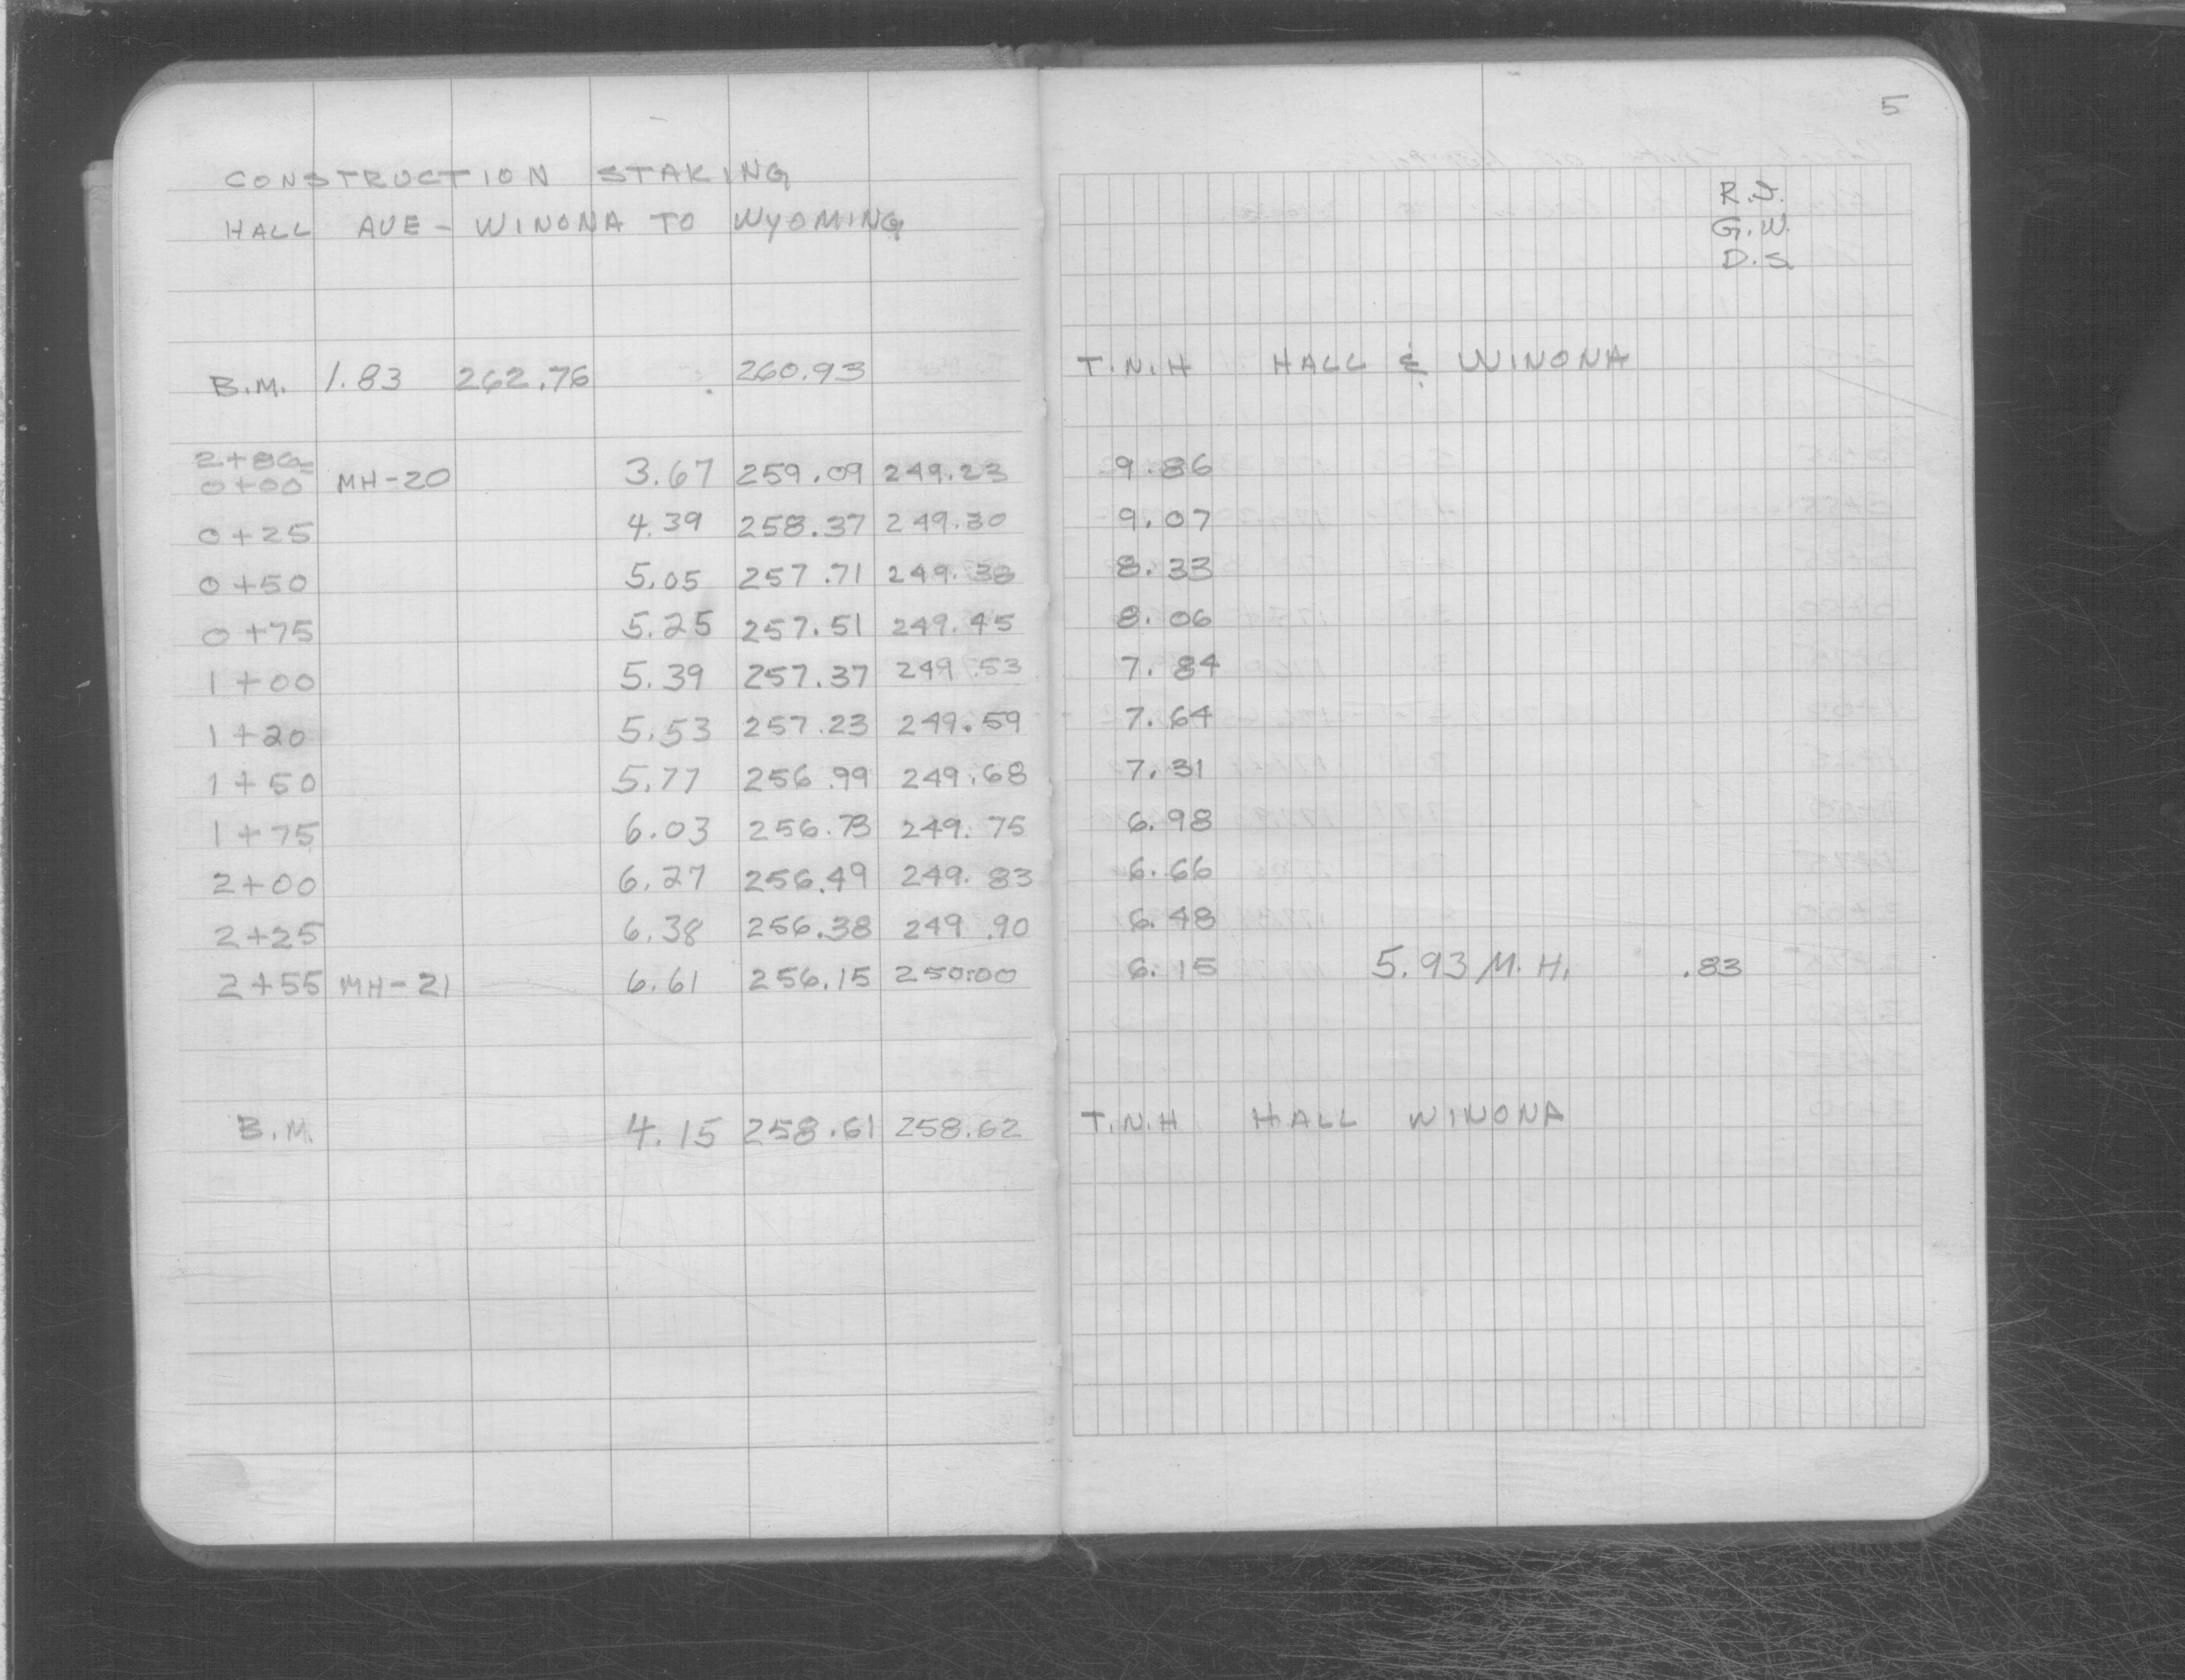 5
CONSTRUCTION STAKING
HALL AVE - WINONA TO WYOMING
R.D.
G.W.
D.S.
B.M. 1.83 262.76 260.93 T.N.H HALL & WINONA
2+86=
0+00 MH-20 3.67 259.09 249.23 9.86
0+25 4.39 258.37 249.30 9.07
0+50 5.05 257.71 249.38 8.33
0+75 5.25 257.51 249.45 8.06
1+00 5.39 257.37 249.53 7.84
1+20 5.53 257.23 249.59 7.64
1+50 5.77 256.99 249.68 7.31
1+75 6.03 256.73 249.75 6.98
2+00 6.27 256.49 249.83 6.66
2+25 6.38 256.38 249.90 6.48
2+55 MH-21 6.61 256.15 250.00 6.15 5.93 M.H. .83
B.M. 4.15 258.61 258.62 T.N.H HALL WINONA